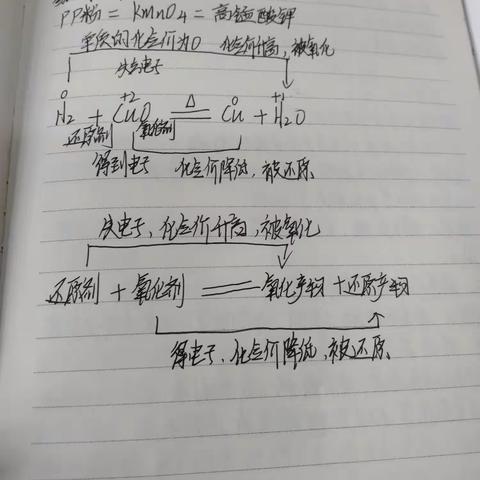 PP粉 = KMnO4 = 高锰酸钾
单质的化合价为0 化合价升高，被氧化
失去电子
0 +2 0 +1
H2 + CuO △ Cu + H2O
还原剂 氧化剂
得到电子 化合价降低，被还原
失电子、化合价升高，被氧化
还原剂 + 氧化剂 == 氧化产物 + 还原产物
得电子、化合价降低、被还原